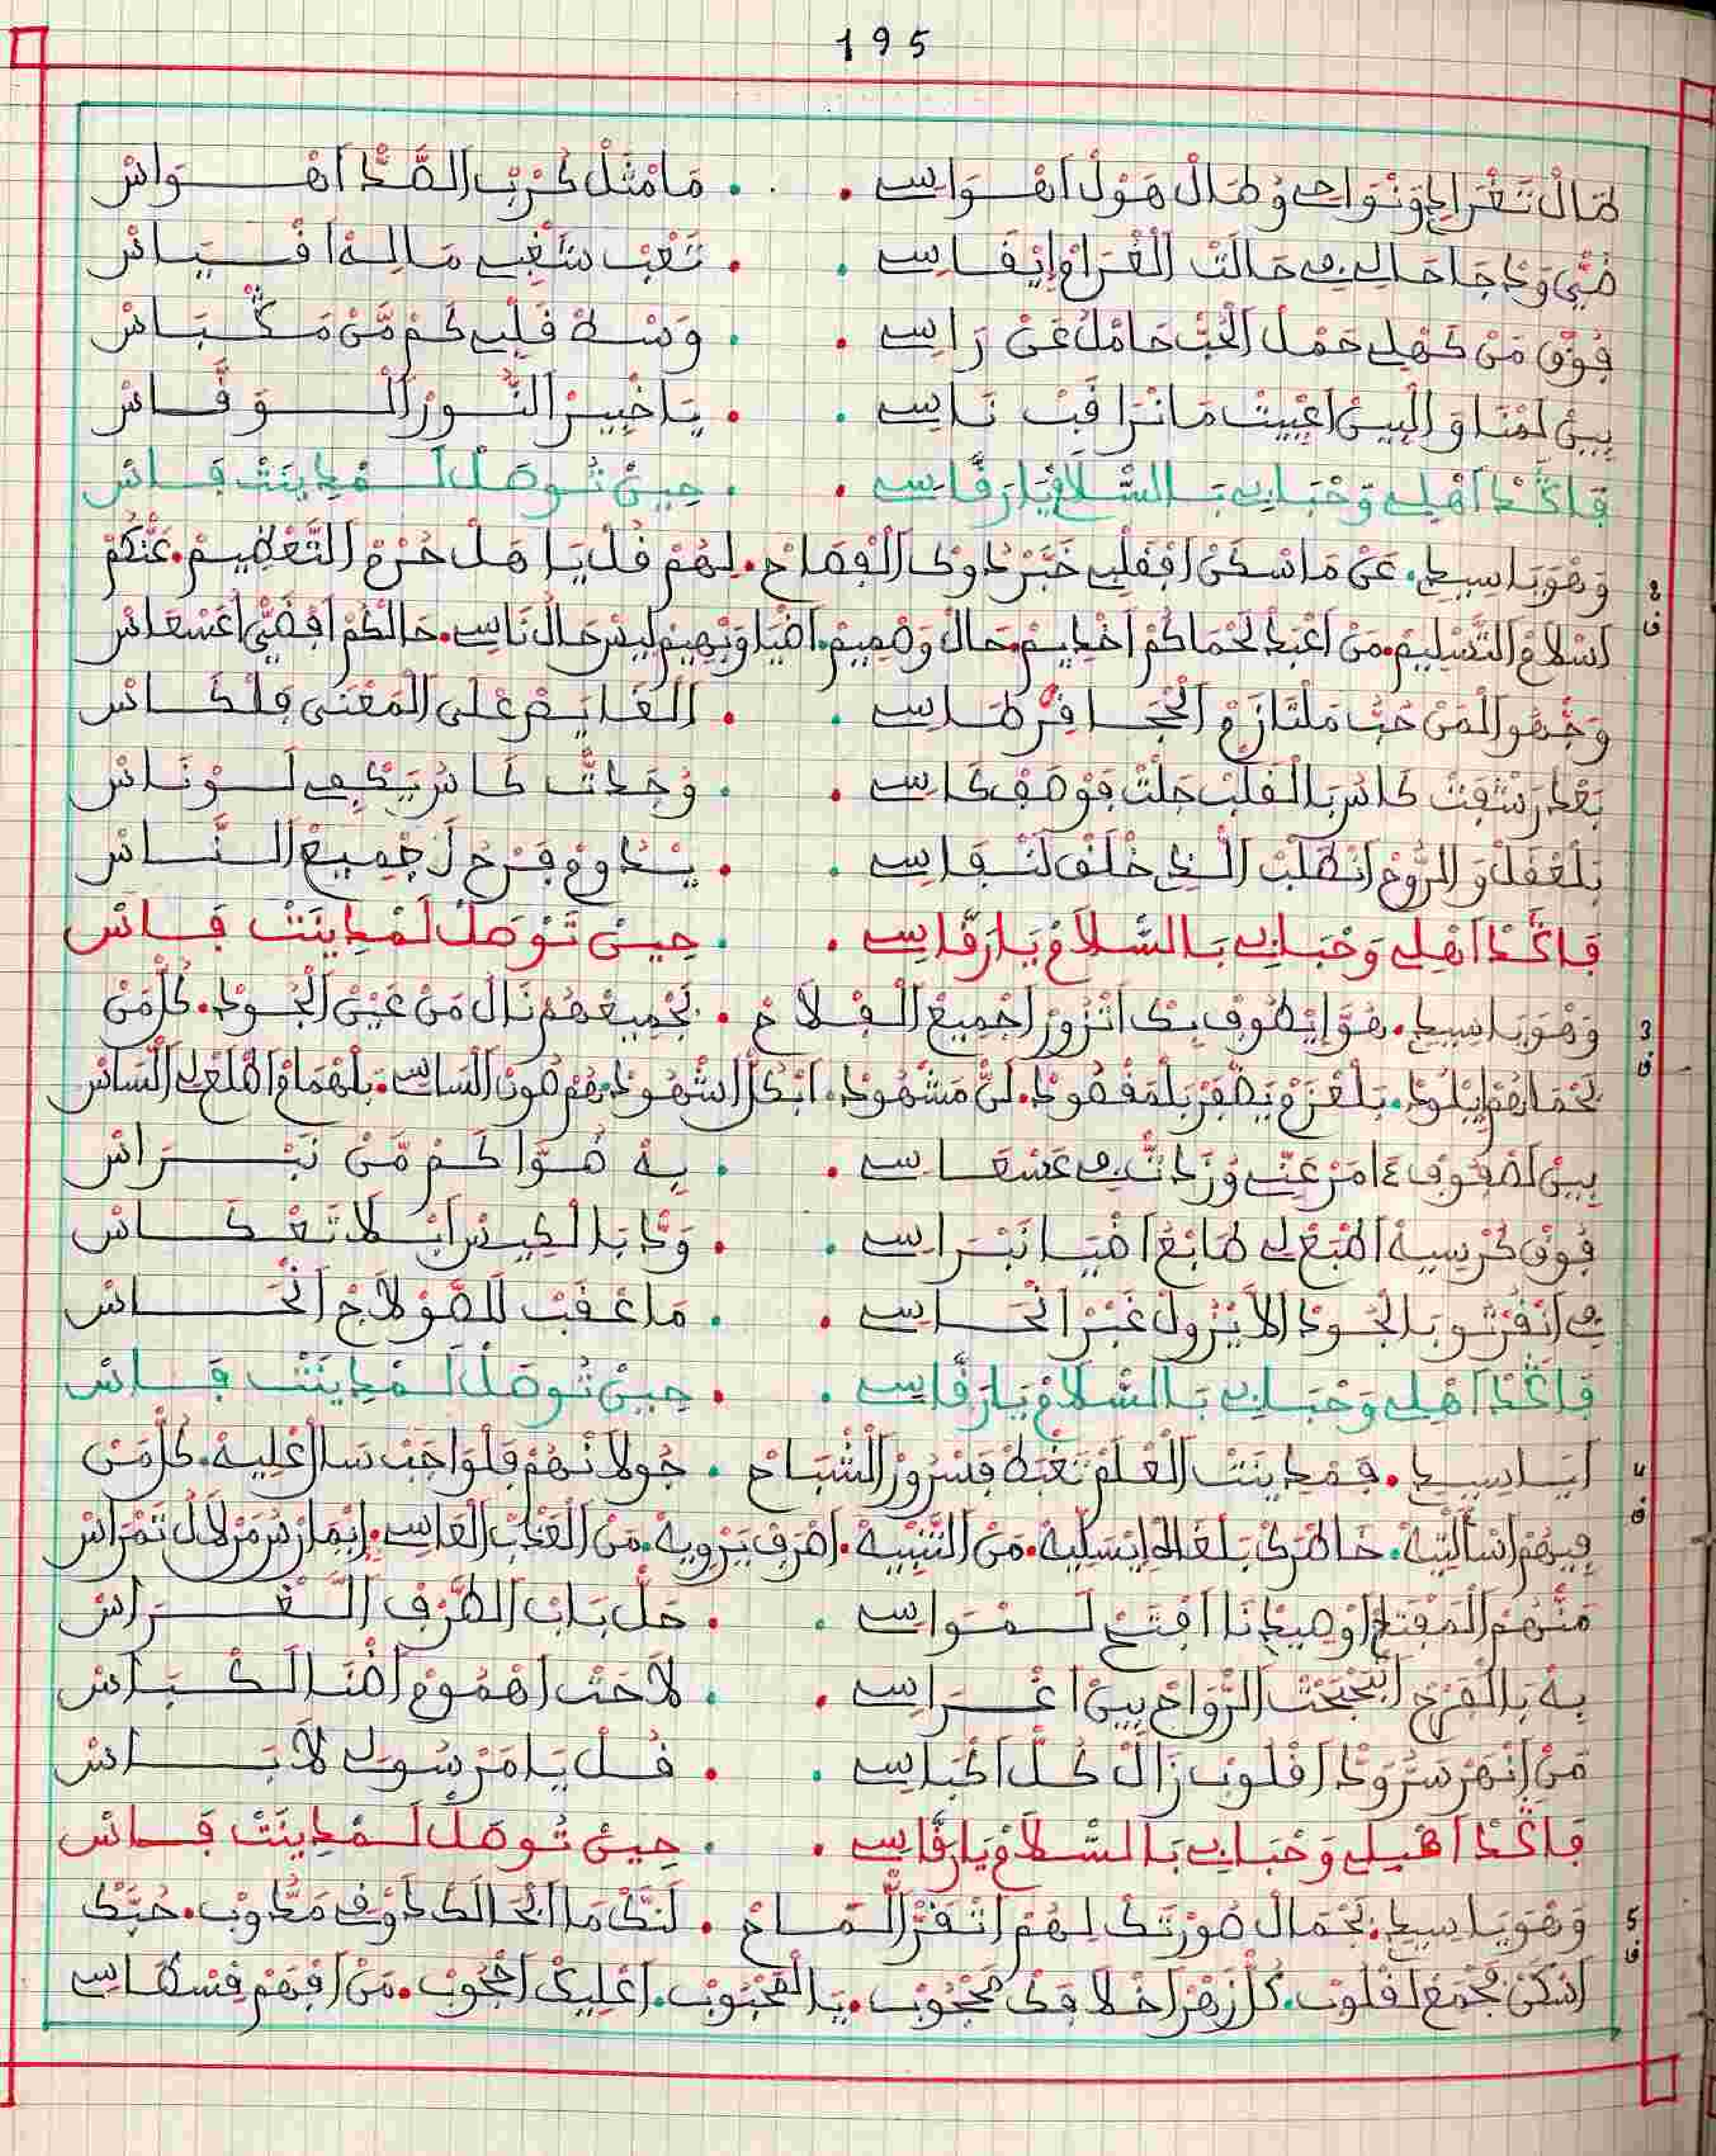 195
طَالْ تَغْرَابِي وَنْوَاحِي وُطَالْ هَوْلْ اَهْـوَاسِي . . مَا مْثَلْ كَرْبْ الصَّدْ اَهْـوَاسْ
ضَيِّي وَدْجَا حَالِي فِي حَالَتْ الْغْرَامْ إِيْقَـاسِي . . تَعْبْ شَغْبِي مَا لِـهْ اَقْـيَـاسْ
فُوقْ مَنْ كَهْلِي حَمْلْ الْحُبْ حَامْلُ عَنْ رَاسِي . . وَسْـطْ قَلْبِي كَمْ مَّنْ مَكْـبَـاسْ
بِينْ لَمْنَا وَالْبِينْ اعْيِيتْ مَا نْرَاقَبْ نَاسِي . . يَا خْبِيرْ النُّـورْ الْـوَقَّـاسْ
قَاصْدْ اَهْلِي وَحْبَابِي بَـالسَّلَامْ يَا رَقَّاسِي . . حِينْ تُـوصَلْ لَـمْدِينَتْ فَـاسْ
وَهْوَ يَا سِيدِي . عَنْ مَا سْكَنْ اَفْقَلْبِي خَبَّرْ دُوكْ الْفْصَاحْ . لِهُمْ قُلْ يَا هَلْ حُرْمْ التَّعْظِيمْ . عَنْكُمْ
2 ف
اَسْلَامْ التَّسْلِيمْ . مَنْ اَعْبَدْ لَحْمَاكُمْ اَخْدِيمْ . حَالْ وَصْمِيمْ . اَضْيَا وَبْهِيمْ لِيسْ حَالْ نَاسِي . حَالْكُمْ اَفْضَيِّ اَعْسْعَاسْ
وَجْهُو الْمَنْ حُبُّ مَلْتَازَمْ الْحْجَـا فِـرْطَـاسِي . . الْغَايَـصْ عْلَى الْمَعْنَى فَلْـكَـاسْ
بَعْدْ رَشْفَتْ كَاسُ بَالْقَلْبْ جَلْتْ فَوْصَفْ كَاسِي . . وُجَدْتْ كَاسُ يَكْفِي لَـوْنَـاسْ
بَلْعْقَلْ وَالرُّوحْ اَنْطَلَبْ الْـدِي خْلَفْ لَنْـفَـاسِي . . يَـدُومْ فَـرْحُ لَجْمِيعْ الـنَّـاسْ
قَاصْدْ اَهْلِي وَحْبَابِي بَـالسَّلَامْ يَـا رَقَّاسِي . . حِينْ تُوصَلْ لَمْدِينَتْ فَـاسْ
وَهْوَ يَا سِيدِي . هُوَّ إِيْطُوفْ بِيكْ اَتْزُورْ اَجْمِيعْ الْـفْـلَاحْ . بَجْمِيعْهُمْ نَالْ مَنْ عَيْنْ الْجُـودْ . كُلّْ مَنْ
3 ف
لَحْمَاهُمْ إِيْلُودْ . بَلْعْزَمْ يَظْفَرْ بَلْمَقْصُودْ . لَنْ مَشْهُودْ . اَبْكُلّْ اشْهُودْ هُمْ صُونْ السَاسِي . بَلْهْمَامْ اَطْلَعْ لِي السَاسْ
بِينْ لَصْفُوفْ عَامَرْ عَنِّي وُزَدْتْ فِي عَسْعَـاسِي . . بِهْ ضَـوَّا كَـمْ مَّنْ نَبْـرَاسْ
فُوقْ كُرْسِيهْ اَطْبَعْ لِي طَابْعْ اَضْيَـا نَبْـرَاسِي . . وَدَّا بَـالْكِيسْ اَبْـلَا تَعْـكَـاسْ
فِي اَنْفُرْتُو بَـالْجُـودْ اَلَا يْزُولْ غَبْرْ اَنْحَـاسِي . . مَا عْقَبْ لَلصَّوْلَاجْ اَنْحَـاسْ
قَاصْدْ اَهْلِي وَحْبَابِي بَـالسَّلَامْ يَـا رَقَّاسِي . . حِينْ تُـوصَلْ لَـمْدِينَتْ فَـاسْ
اَيَـا سِيدِي . فَمْدِينَتْ الْعْلَمْ تَغْبَطْ فَسْرُورْ الْشْبَـاحْ . جُولَانْهُمْ قَلْ وَاجَبْ سَالْ عْلِيهْ . كُلّْ مَنْ
4 ف
فِيهُمْ اَسْأَلْتِيهْ . خَاطْرَكْ بَلْغَالَا إِيْسَلِّيهْ . مَنْ التَّنْبِيهْ . اَصْرَفْ يَرْوِيهْ . مَنْ الْعْذَبْ الْعَاسِي . إِيْمَارَسْ مَرْ لَالُ تَمْرَاسْ
مَنْهُمْ الْمَفْتَاحْ اُوصِيدْنَا اَفْتَحْ لَـمْـوَاسِي . . حَلّْ بَـابْ الطَّرْفْ النَّـعْـرَاسْ
بِهْ بَـالْفَرْحْ اَتْبَجْبْجَتْ الرْوَاحْ بِينْ اَغْـرَاسِي . . لَا حَتْ اَهْمُومْ اَضْنَـا لَـكْـبَـاسْ
مَنْ اَنْهَرْ سَرُّ وَدْ اَقْلُوبْ زَالْ كُـلّْ اَكْبَـاسِي . . قُـلْ يَـا مَرْسُولِي لَا بَـاسْ
قَاصْدْ اَهْلِي وَحْبَابِي بَـالسَّـلَامْ يَـا رَقَّاسِي . . حِينْ تُـوصَلْ لَـمْدِينَتْ فَـاسْ
وَهْوَ يَا سِيدِي . بَجْمَالْ صُورْتَكْ لِهُمْ اَتْفَزْ الْـمَـاحْ . لَنَّكْ مَا اَبْحَالَكْ دُوقْ مَدُّوبْ . حُبَّكْ
5 ف
اَسْكَنْ مَجْمَعْ لَقْلُوبْ . كُلّْ زْهَرْ اَخْلَافَكْ مَحْجُوبْ . يَـا الْمَحْبُوبْ . اَعْلِيكْ اَحْجُوبْ . مَنْ اَفْهَمْ فَسْطَاسِي